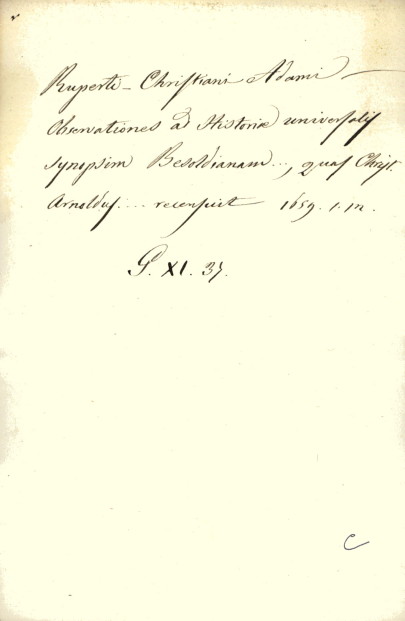 Ruperti - Christiani Adami -
Observationes ad Historiæ universalis
synopsim Besoldianam ..., quas Christ.
Arnoldus .... recensuit 1659. 1. in.
G. XI. 37.
C